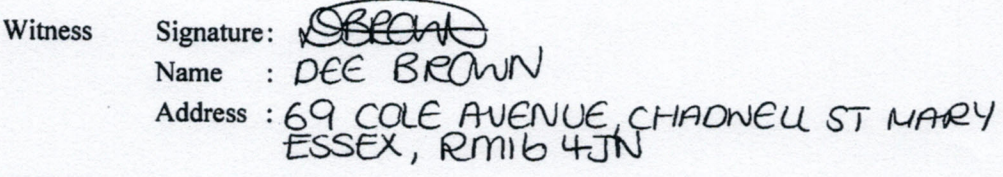 Witness Signature: DBROWN
Name : DEE BROWN
Address : 69 COLE AVENUE, CHADWELL ST MARY
ESSEX, RM16 4JN